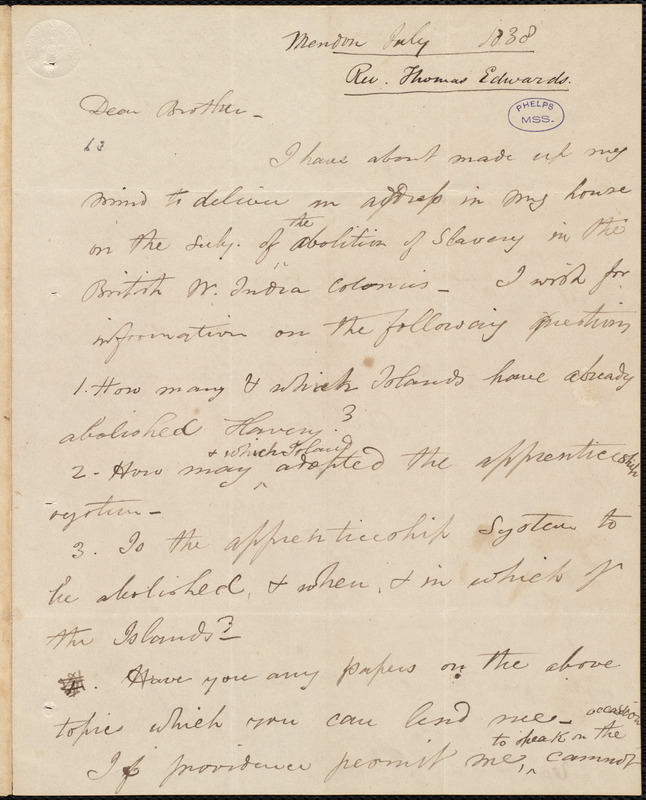 Mendon July 1838
Rev. Thomas Edwards.
PHELPS
MSS.
Dear Brother -
63
I have about made up my
mind to deliver an address in my house
on the Subj. of the abolition of Slavery in the
British W. India Colonies - I wish for
information on the following questions
1. How many & which Islands have already
abolished Slavery?
2 - How many & which Island adopted the apprenticeship
system -
3. Is the apprenticeship System to
be abolished, & when, & in which of
the Islands?
Have you any papers on the above
topics which you can lend me -
If providence permit me, to speak on the occasion cannot